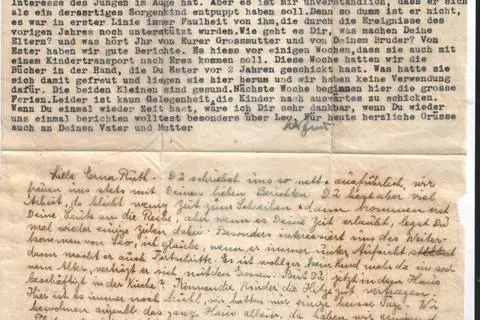 Interesse des Jungen im Auge hat. Aber es ist mir unverständlich, dass er sich
als ein derartiges Sorgenkind entpuppt haben soll.Denn so dumm ist er nicht,
es war in erster Linie immer Faulheit von ihm,die durch die Ereignisse des
vorigen Jahres noch unterstützt wurden.Wie geht es Dir, was machen Deine
Eltern? und was hört Jhr von Eurer Grossmutter und von Deinem Bruder? Von
Ester haben wir gute Berichte. Es hiess vor einigen Wochen,dass sie auch mit
einem Kindertransport nach Erez kommen soll. Diese Woche hatten wir die
Bücher in der Hand, die Du Ester vor 2 Jahren geschickt hast. Was hatte sie
sich damit gefreut und liegen sie hier herum und wir haben keine Verwendung
dafür. Die beiden Kleinen sind gesund.Nächste Woche beginnen hier die grosse
Ferien.Leider ist kaum Gelegenheit,die Kinder nach auswärts zu schicken.
Wenn Du einmal wieder Zeit hast, wäre ich Dir sehr dankbar, wenn Du wieder
uns einmal berichten wolltest besonders über Leo. Für heute herzliche Grüsse
auch an Deinen Vater und Mutter
Liebe Erna Ruth. Du schriebst uns so nett, ausführlich, wir
freuen uns stets mit Deinen lieben Berichten. Du hast aber viel
Arbeit, da bleibt wenig Zeit zum Schreiben dann kommen erst
Deine Leute an die Reihe, aber wenn es Deine Zeit erlaubt, legst Du
mal wieder einige Zeilen dabei. Besonders interessiert uns das Weiter-
kommen von Leo, ich glaube, wenn er immer unter Aufsicht
dann macht er auch Fortschritte. Es ist wohl gar kein Kind mehr da in sei-
nem Alter, verträgt er sich mit den Grossen. Bist Du jetzt in dem Haus
beschäftigt in der Küche? Können die Kinder die Hitze gut vertragen.
Hier ist es immer noch nicht, wir hatten nur einige heisse Tage. Wir
bewohnen das ganze Haus alleine, da haben wir